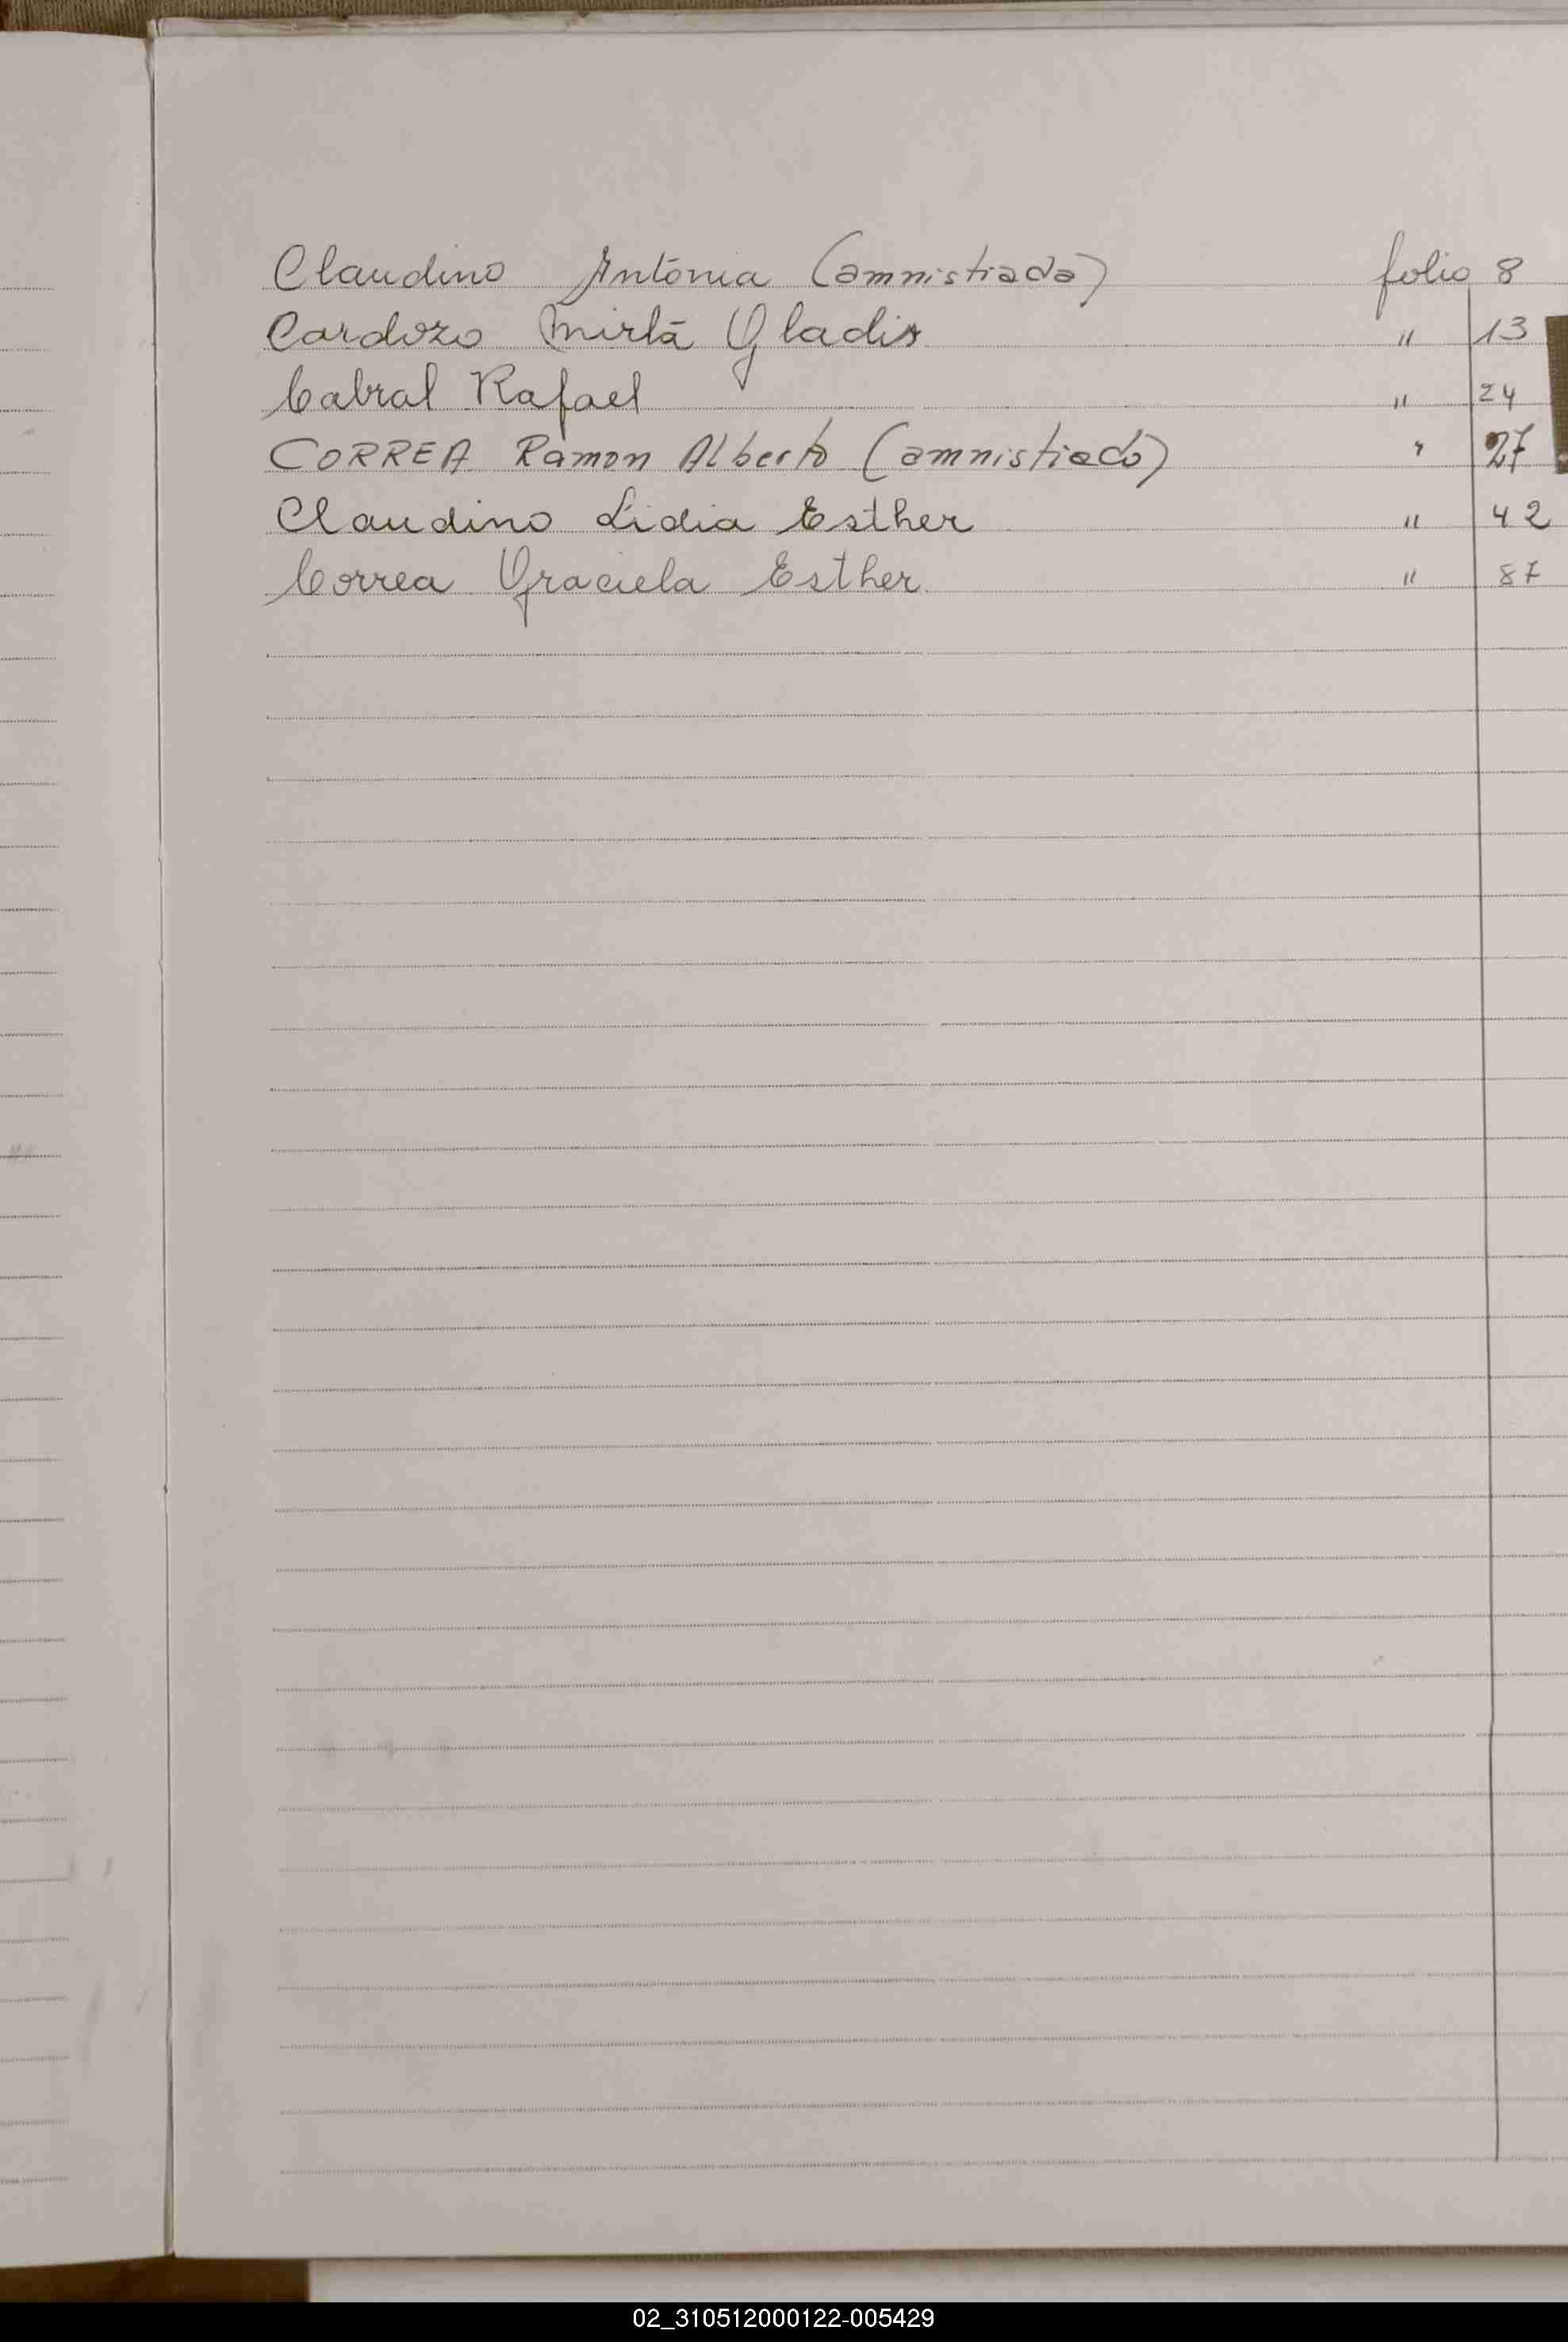 Claudino Antonia (amnistiada) folio 8
Cardozo Mirta Gladis " 13
Cabral Rafael " 24
CORREA Ramon Alberto (amnistiado) " 27
Claudino Lidia Esther " 42
Correa Graciela Esther " 87
02_310512000122-005429